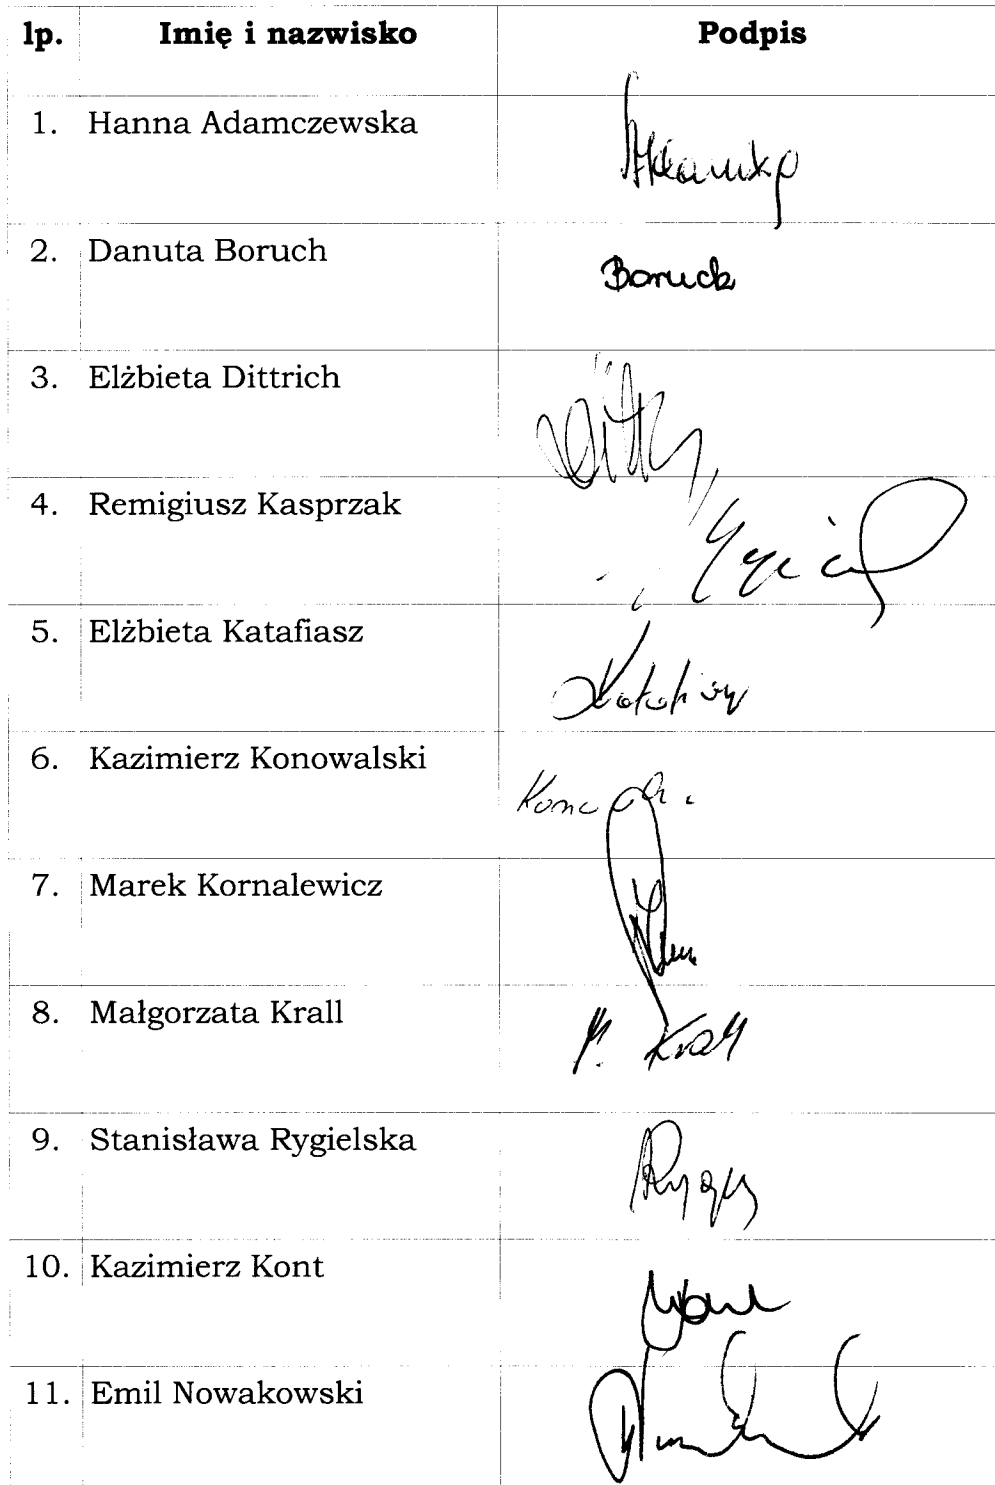 lp. Imię i nazwisko Podpis
1. Hanna Adamczewska
2. Danuta Boruch Boruch
3. Elżbieta Dittrich
4. Remigiusz Kasprzak
5. Elżbieta Katafiasz
6. Kazimierz Konowalski
7. Marek Kornalewicz
8. Małgorzata Krall M. Krall
9. Stanisława Rygielska
10. Kazimierz Kont
11. Emil Nowakowski